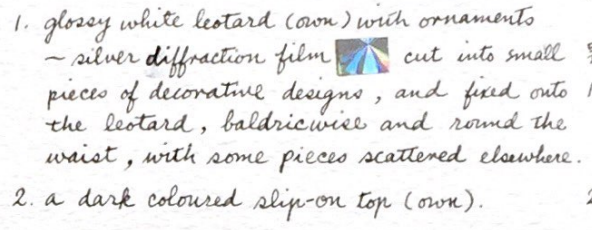 1. glossy white leotard (own) with ornaments
~ silver diffraction film cut into small
pieces of decorative designs, and fixed onto
the leotard, baldricwise and round the
waist, with some pieces scattered elsewhere.
2. a dark coloured slip-on top (own).